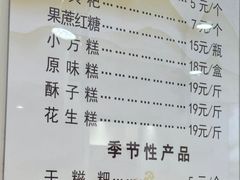 粑 5元/个
果蔗红糖 7元/个
小方糕 15元/瓶
原味糕 18元/盒
酥子糕 19元/斤
花生糕 19元/斤
季节性产品
干糍粑